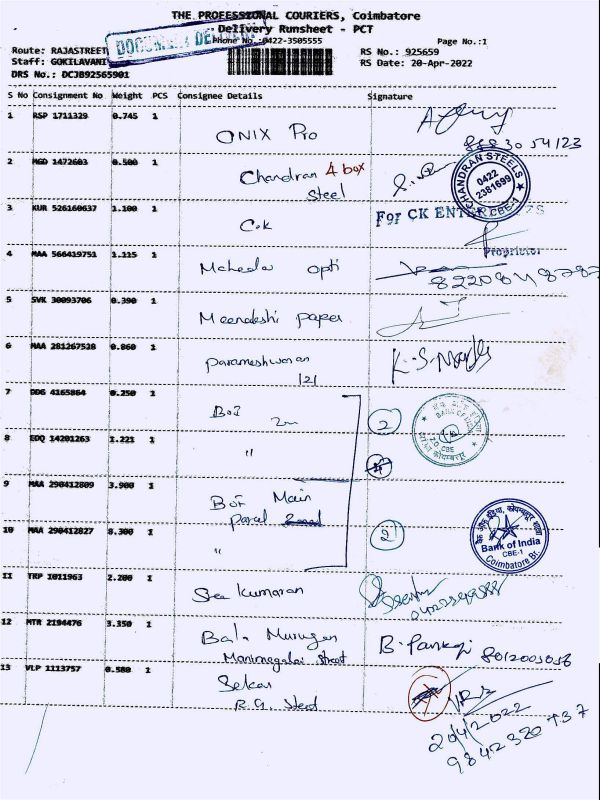 THE PROFESSIONAL COURIERS, Coimbatore
Delivery Runsheet - PCT
Phone No.:0422-3505555
Page No.:1
DOCUMENT DELIVERY
Route: RAJASTREET
RS No.: 925659
Staff: GOKILAVANI
RS Date: 20-Apr-2022
DRS No.: DCJB92565901
S No Consignment No Weight PCS Consignee Details Signature
1 RSP 1711329 0.745 1 ONIX Pro
2 MGD 1472603 0.500 1 Chandran 4 box
Steel
CHANDRAN STEELS
0422
2381699
CBE-1
3 KUR 526160637 1.100 1 C.K
For CK ENTERPRISES
Proprietor
4 MAA 566419751 1.115 1 opti
5 SVK 30093706 0.390 1 Meenakshi paper
6 MAA 281267528 0.860 1 Parameshwaran
121
7 DDG 4165864 0.250 1 BOI
2
BANK OF INDIA
CBE
8 EDQ 14201263 1.221 1 "
9 MAA 290412809 3.900 1 BOI Main
Parcel
10 MAA 290412827 8.300 1 "
2
Bank of India
CBE-1
Coimbatore Br.
11 TRP 1011963 2.200 1 Sree Kumaran
12 MTR 2194476 3.350 1 Bala Murugan
Street
B. Pankaj
13 VLP 1113757 0.580 1 Sekar
R.G. Street
20/4/2022